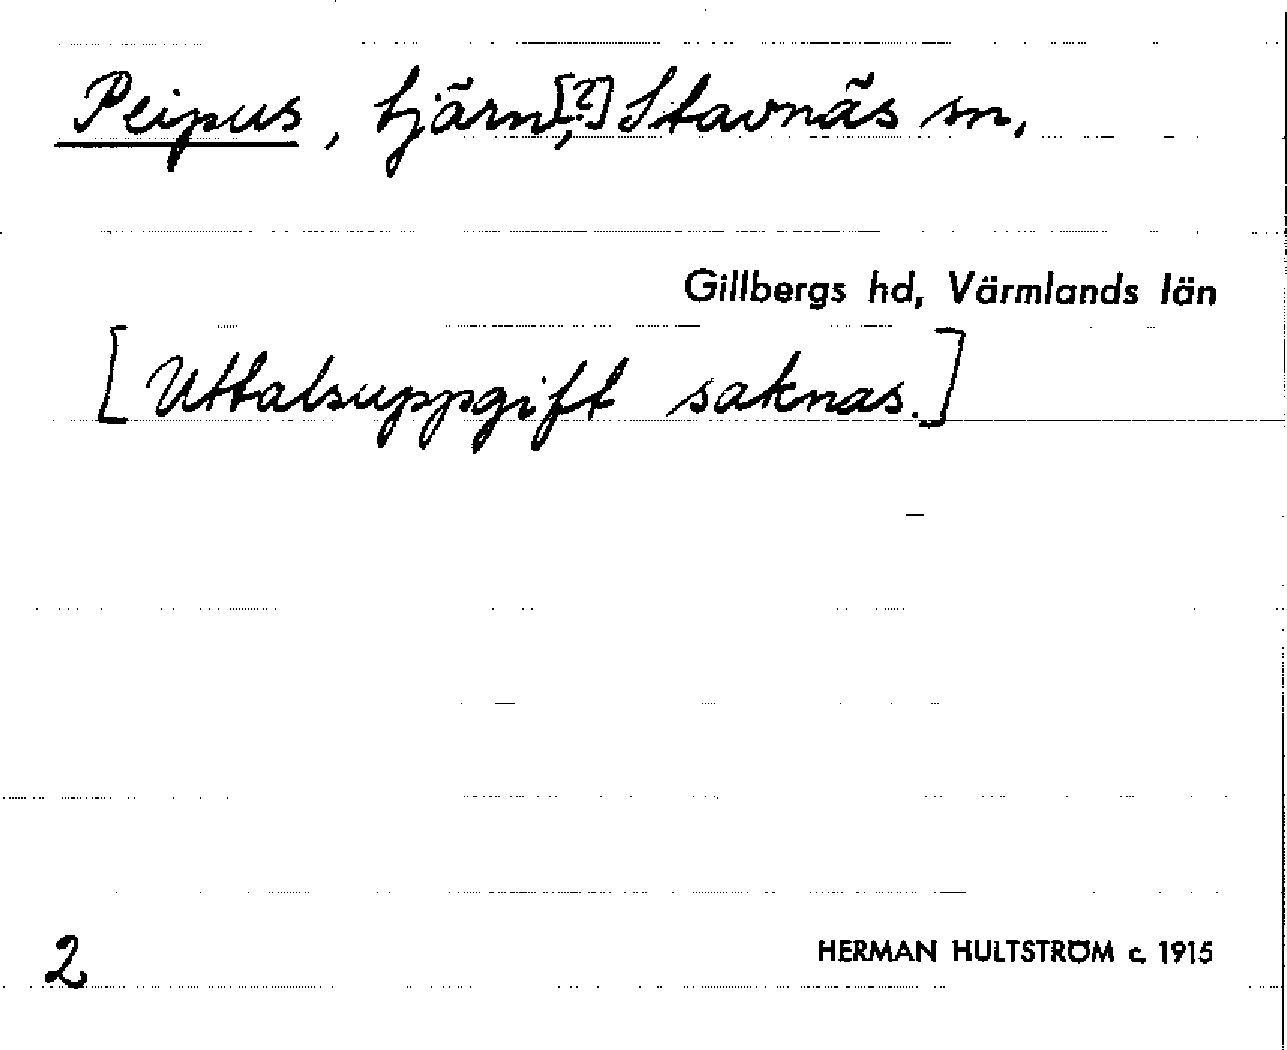 Peipus, tjärn[?], Stavnäs sn,
Gillbergs hd, Värmlands län
[Uttalsuppgift saknas.]
2
HERMAN HULTSTRÖM c. 1915